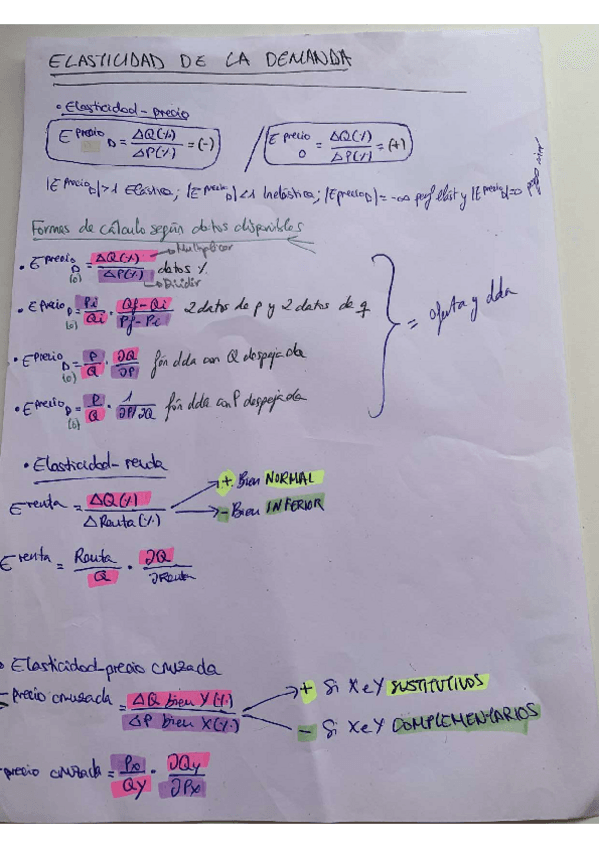 ELASTICIDAD DE LA DEMANDA
• Elasticidad-precio
E precio D = ΔQ(%) / ΔP(%) = (-) / E precio O = ΔQ(%) / ΔP(%) = (+)
|E precio D| > 1 Elástica; |E precio D| < 1 Inelástica; |E precio D| = -∞ perf elást y |E precio D| = 0
Formas de cálculo según datos disponibles
• E precio D (o) = ΔQ(%) / ΔP(%) datos %
→ Multiplicar
→ Dividir
• E precio D (o) = Pi / Qi · Qf - Qi / Pf - Pi 2 datos de p y 2 datos de q
= oferta y dda
• E precio D (o) = P / Q · ∂Q / ∂P fón dda con Q despejada
• E precio D (o) = P / Q · 1 / ∂P/∂Q fón dda con P despejada
• Elasticidad-renta
E renta = ΔQ(%) / ΔRenta(%)
+ Bien NORMAL
- Bien INFERIOR
E renta = Renta / Q · ∂Q / ∂Renta
• Elasticidad-precio cruzada
precio cruzada = ΔQ bien Y(%) / ΔP bien X(%)
+ Si X e Y SUSTITUTIVOS
- Si X e Y COMPLEMENTARIOS
precio cruzada = Px / Qy · ∂Qy / ∂Px